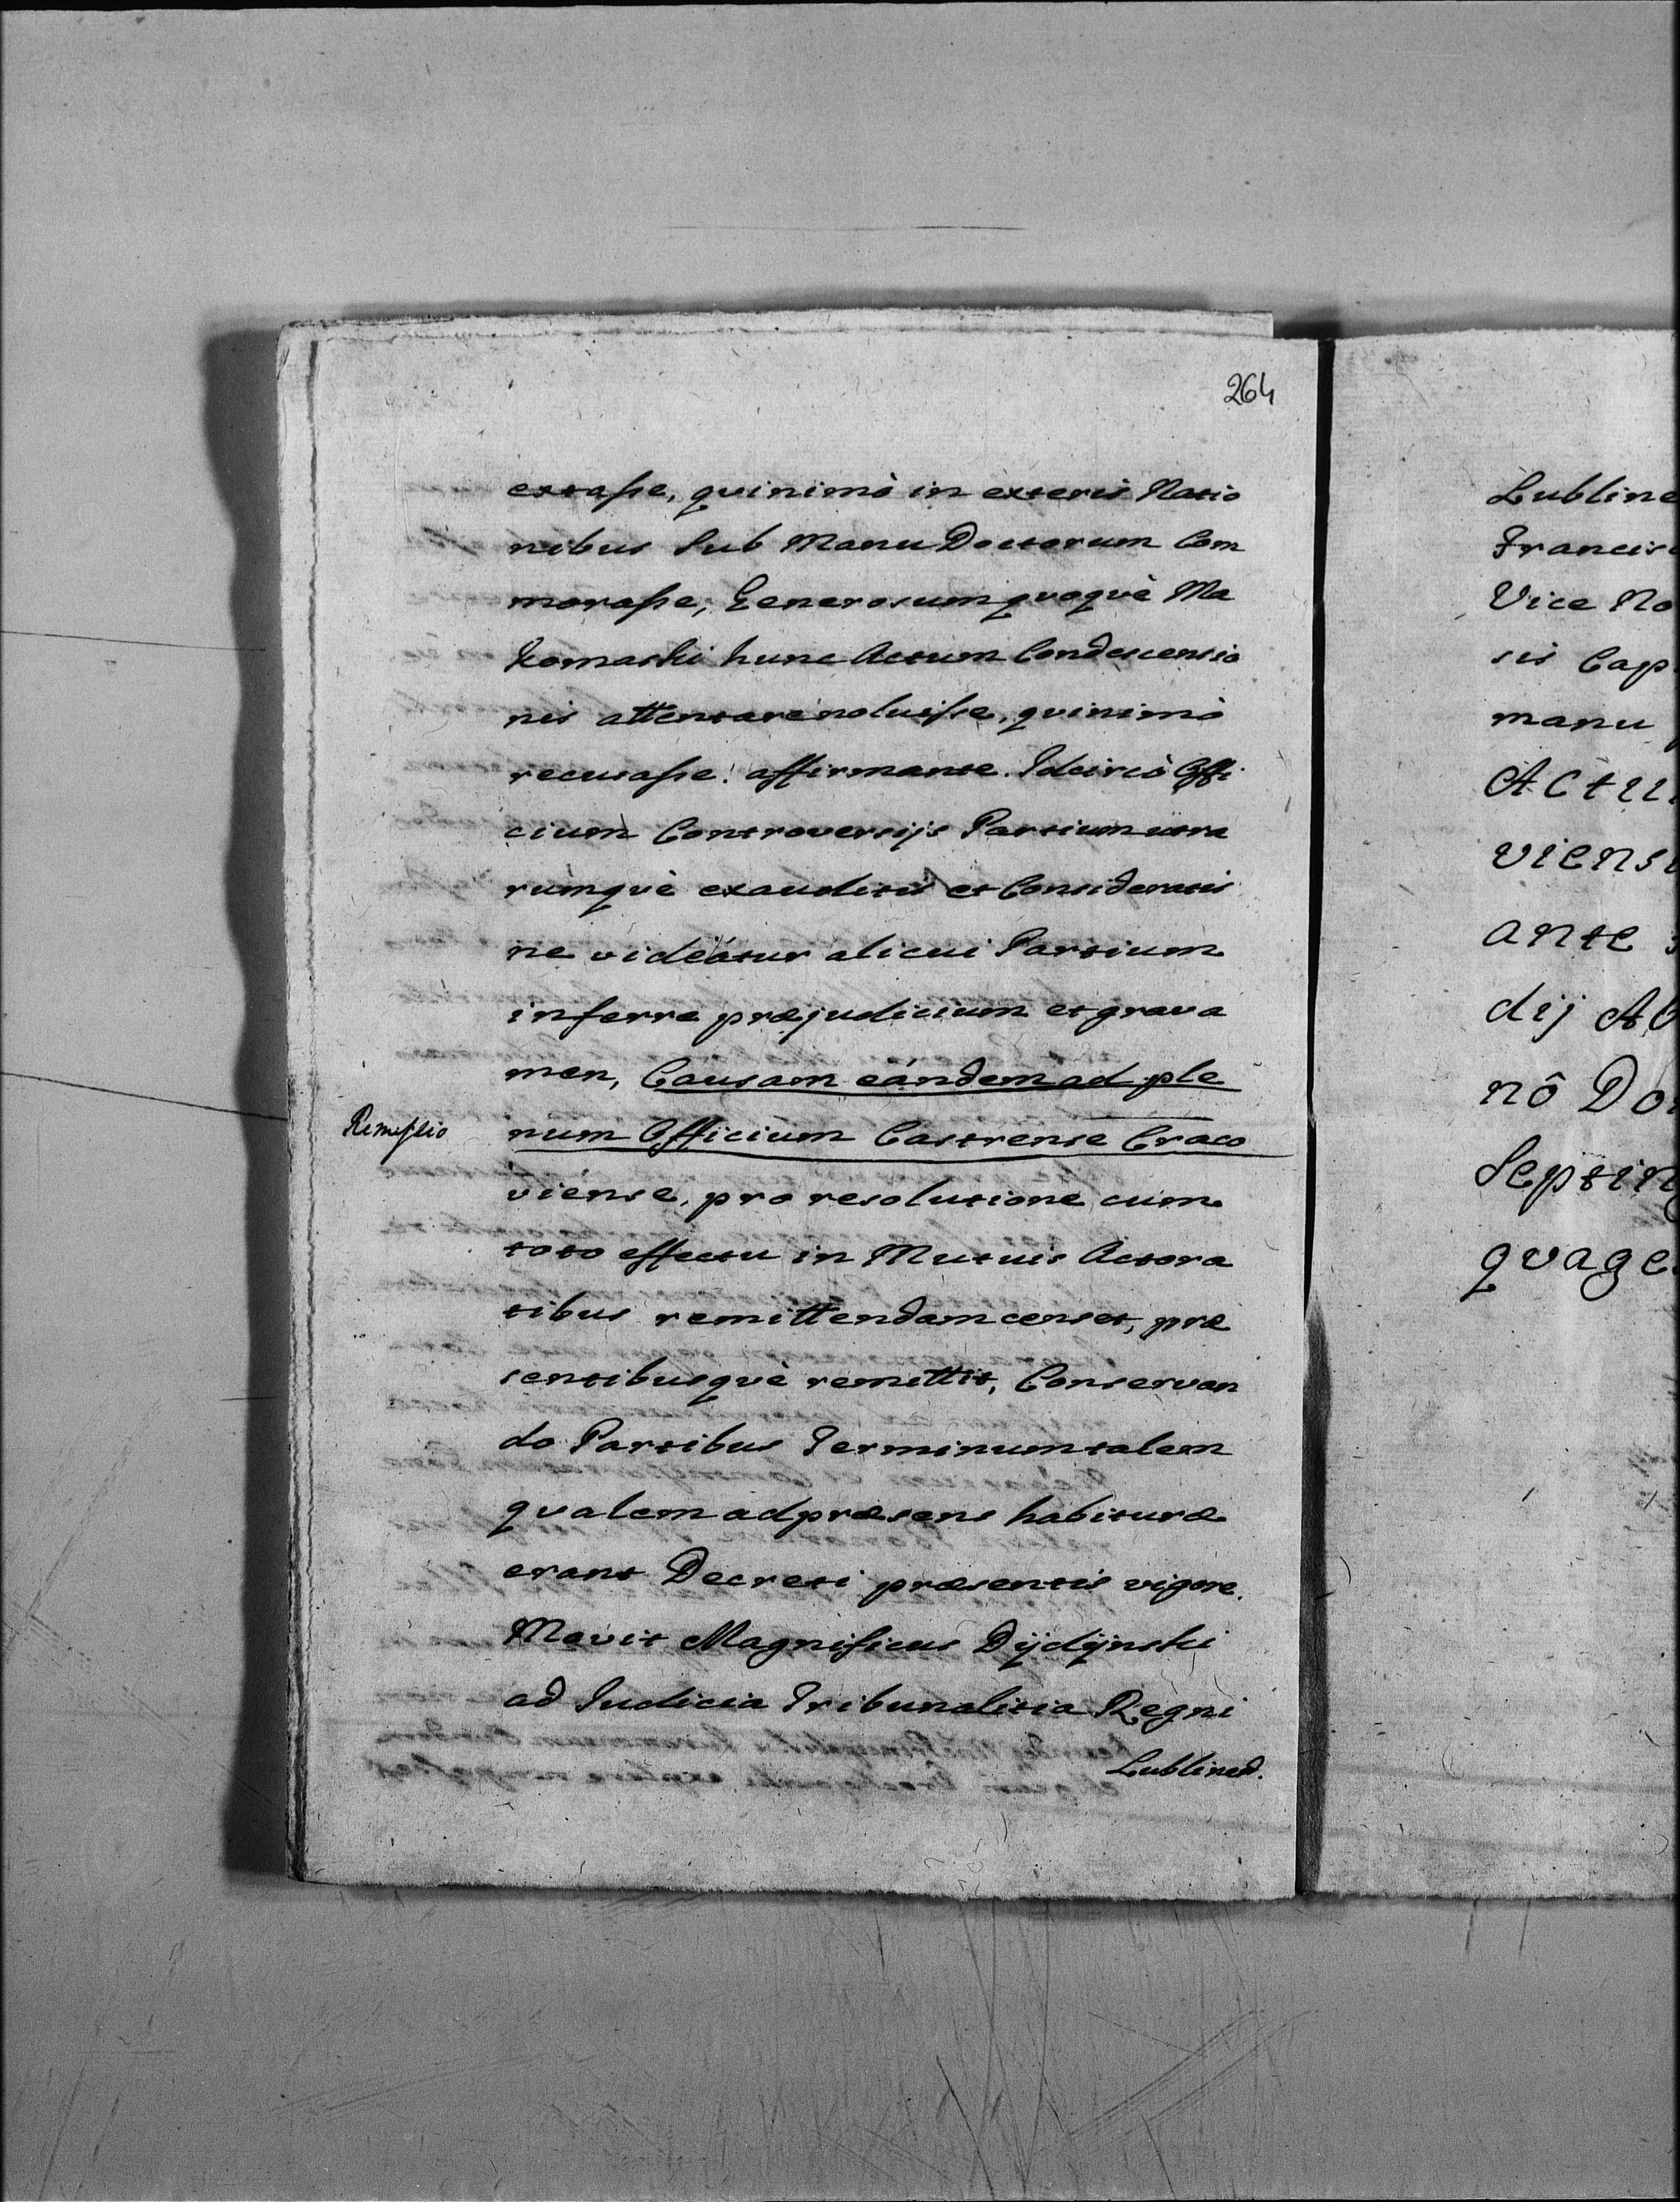 264
extasse, quinimò in exteris Natio
nibus Sub Manu Doctorum Com
morasse, Generosum quoquè Ma
komaski hunc Actum Condescensio
nis attentare noluisse, quinimò
recusasse. affirmante. Idcircò Offi
cium Controversijs Partium utra
rumquè exauditis et Consideratis
ne videatur alicui Partium
inferre præjudicium et grava
men, Causam eándem ad ple
Remissio
num Officium Castrense Craco
viense, pro resolutione cum
toto effectu in Mutuis Actora
tibus remittendam censet, præ
sentibusquè remittit, Conservan
do Partibus Terminum talem
qualem ad præsens habituræ
erant Decreti præsentis vigore.
Movit Magnificus Dÿdÿnski
ad Iudicia Tribunalitia Regni
Lublinen.
Lubline
Francisc
Vice No
sis Cap
manu
Actu
viensi
ante
dij
nô Do
Septin
quage